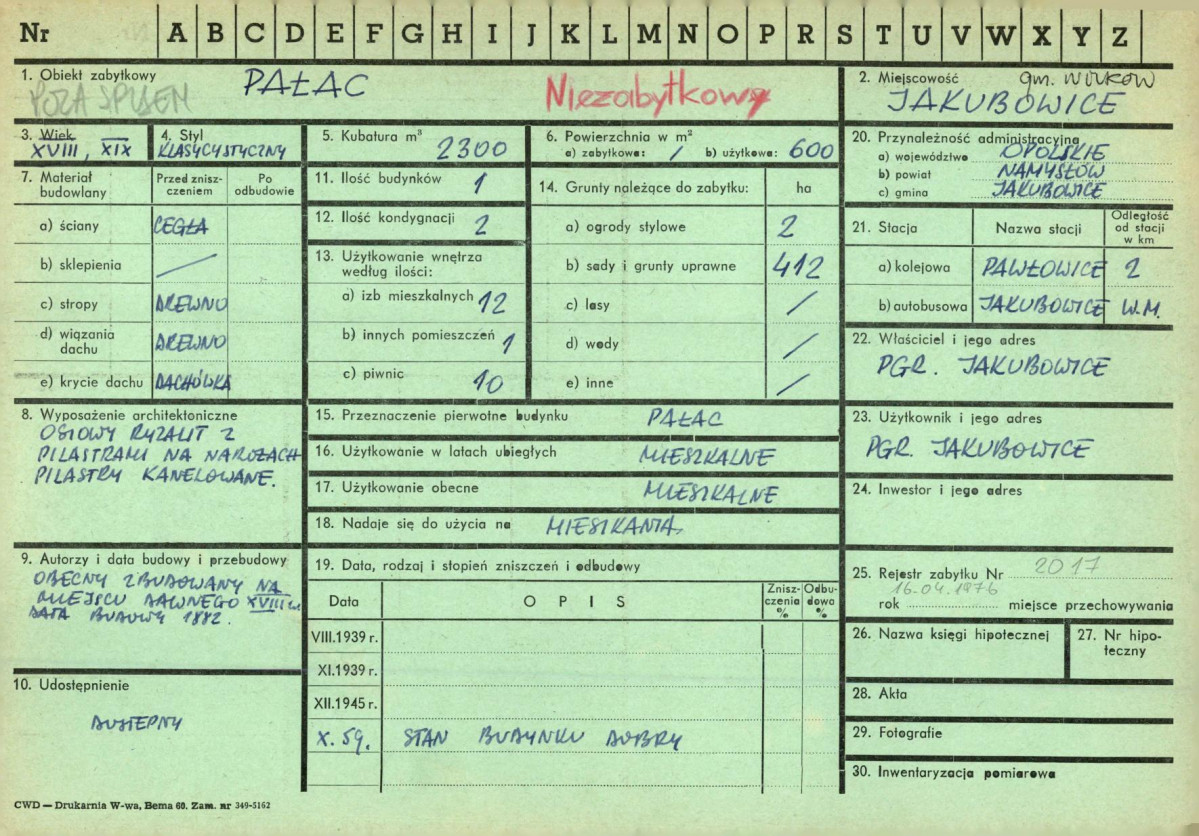 Nr A B C D E F G H I J K L M N O P R S T U V W X Y Z
1. Obiekt zabytkowy
PAŁAC
POZA SPISEM
Niezabytkowy
2. Miejscowość
gm. WILKÓW
JAKUBOWICE
3. Wiek
XVIII, XIX
4. Styl
KLASYCYSTYCZNY
5. Kubatura m³
2300
6. Powierzchnia w m²
a) zabytkowa: / b) użytkowa: 600
7. Materiał budowlany
Przed zniszczeniem
Po odbudowie
a) ściany CEGŁA
b) sklepienia /
c) stropy DREWNO
d) wiązania dachu DREWNO
e) krycie dachu DACHÓWKA
8. Wyposażenie architektoniczne
OSIOWY RYZALIT Z
PILASTRAMI NA NAROŻACH
PILASTRY KANELOWANE.
9. Autorzy i data budowy i przebudowy
OBECNY ZBUDOWANY NA
MIEJSCU DAWNEGO XVIII w.
DATA BUDOWY 1882.
10. Udostępnienie
DOSTĘPNY
11. Ilość budynków 1
12. Ilość kondygnacji 2
13. Użytkowanie wnętrza
według ilości:
a) izb mieszkalnych 12
b) innych pomieszczeń 1
c) piwnic 10
14. Grunty należące do zabytku: ha
a) ogrody stylowe 2
b) sady i grunty uprawne 412
c) lasy /
d) wody /
e) inne /
15. Przeznaczenie pierwotne budynku PAŁAC
16. Użytkowanie w latach ubiegłych MIESZKALNE
17. Użytkowanie obecne MIESZKALNE
18. Nadaje się do użycia na MIESZKANIA
19. Data, rodzaj i stopień zniszczeń i odbudowy
Data
O P I S
Zniszczenia %
Odbudowa %
VIII.1939 r.
XI.1939 r.
XII.1945 r.
X. 59. STAN BUDYNKU DOBRY
20. Przynależność administracyjna
a) województwo OPOLSKIE
b) powiat NAMYSŁÓW
c) gmina JAKUBOWICE
21. Stacja
Nazwa stacji
Odległość od stacji w km
a) kolejowa PAWŁOWICE 2
b) autobusowa JAKUBOWICE W.M.
22. Właściciel i jego adres
PGR. JAKUBOWICE
23. Użytkownik i jego adres
PGR. JAKUBOWICE
24. Inwestor i jego adres
25. Rejestr zabytku Nr 2017
16.04.1976
rok miejsce przechowywania
26. Nazwa księgi hipotecznej
27. Nr hipoteczny
28. Akta
29. Fotografie
30. Inwentaryzacja pomiarowa
CWD — Drukarnia W-wa, Bema 60. Zam. nr 349-5162